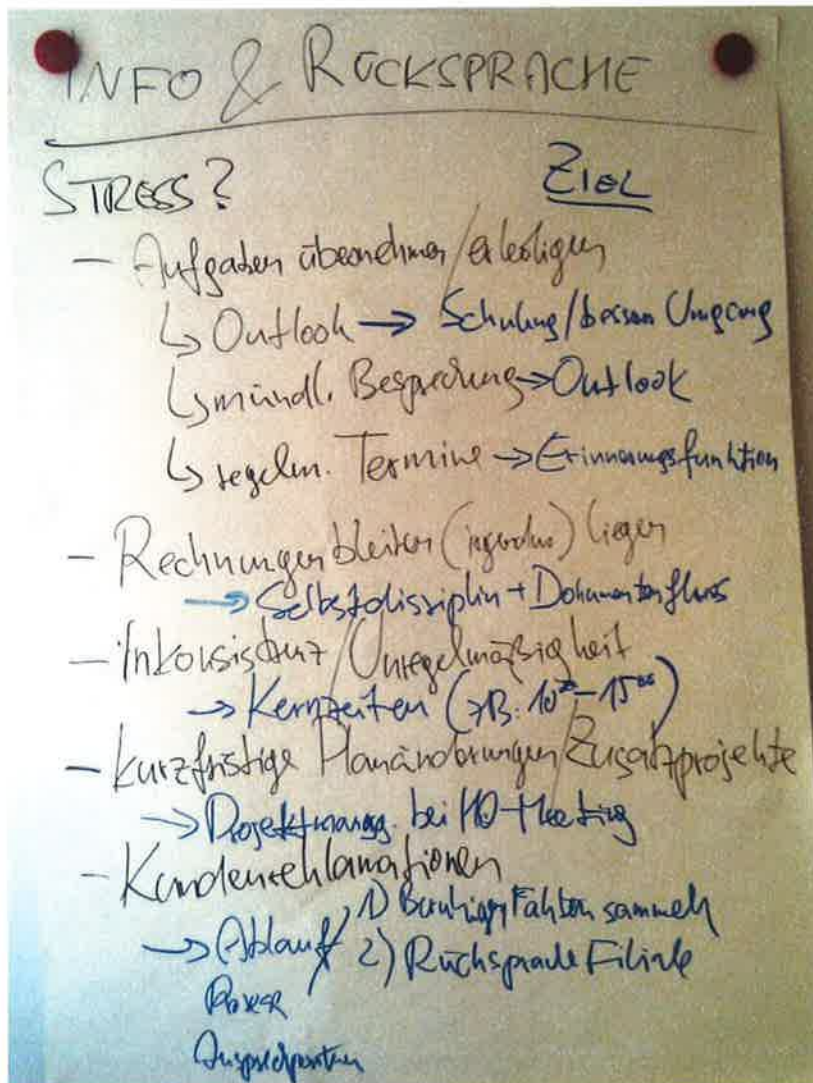 INFO & RÜCKSPRACHE
STRESS? ZIEL
- Aufgaben übernehmen/erledigen
↳ Outlook → Schulung/besseren Umgang
↳ mündl. Besprechung → Outlook
↳ regelm. Termine → Erinnerungsfunktion
- Rechnungen bleiben (irgendwo) liegen
→ Selbstdisziplin + Dokumentenfluss
- Inkonsistenz/Unregelmäßigkeit
→ Kernzeiten (zB: 10⁰⁰-15⁰⁰)
- kurzfristige Planänderungen/Zusatzprojekte
→ Projektmanag. bei HO-Meeting
- Kundenreklamationen
→ Ablauf/ 1) Beruhigen/Fakten sammeln
2) Rücksprache Filiale
Prozess
Ansprechpartner